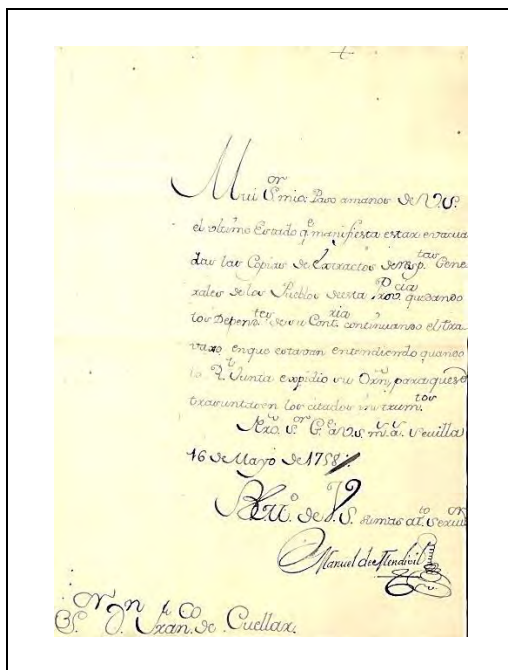 +
Mui S.or mio: Paso a manos de V.S.
el ultimo Estado q.e manifiesta estar evacua
das las Copias de Extractos de resp.tas Gene
rales de los Pueblos de esta Prov.cia quedando
los Depend.tes de su Cont.ria continuando el tra
vaxo, en que estavan entendiendo quando
la R.l Junta expidio su Orn, para que se
trasuntasen los citados instrum.tos
Nro. S.or G.e a V.S. m.s a.s Sevilla
16 de Mayo de 1758.
B.L.M. de V.S. su mas at.to servi.or
Manuel de Mendivil
S.or D.n Fran.co de Cuellar.